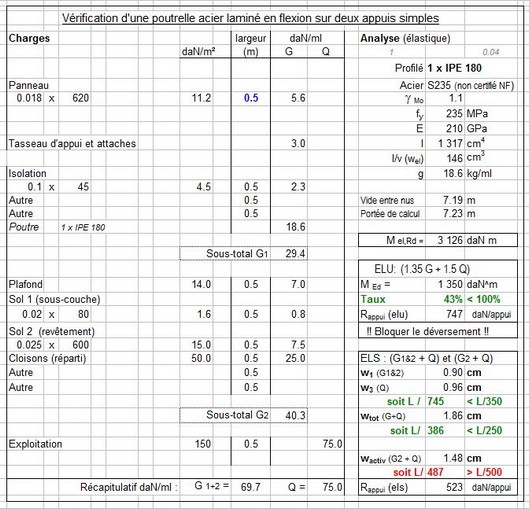 Vérification d'une poutrelle acier laminé en flexion sur deux appuis simples
Charges
largeur daN/ml
daN/m² (m) G Q
Panneau
0.018 x 620 11.2 0.5 5.6
Tasseau d'appui et attaches 3.0
Isolation
0.1 x 45 4.5 0.5 2.3
Autre 0.5
Autre 0.5
Poutre 1 x IPE 180 18.6
Sous-total G1 29.4
Plafond 14.0 0.5 7.0
Sol 1 (sous-couche)
0.02 x 80 1.6 0.5 0.8
Sol 2 (revêtement)
0.025 x 600 15.0 0.5 7.5
Cloisons (réparti) 50.0 0.5 25.0
Autre 0.5
Autre 0.5
Sous-total G2 40.3
Exploitation 150 0.5 75.0
Récapitulatif daN/ml : G 1+2 = 69.7 Q = 75.0
Analyse (élastique)
1 0.04
Profilé 1 x IPE 180
Acier S235 (non certifié NF)
γ Mo 1.1
fy 235 MPa
E 210 GPa
I 1 317 cm4
I/v (wel) 146 cm3
g 18.6 kg/ml
Vide entre nus 7.19 m
Portée de calcul 7.23 m
M el,Rd = 3 126 daN m
ELU: (1.35 G + 1.5 Q)
M Ed = 1 350 daN^m
Taux 43% < 100%
Rappui (elu) 747 daN/appui
!! Bloquer le déversement !!
ELS : (G1&2 + Q) et (G2 + Q)
w1 (G1&2) 0.90 cm
w3 (Q) 0.96 cm
soit L / 745 < L/350
wtot (G+Q) 1.86 cm
soit L/ 386 < L/250
wactiv (G2 + Q) 1.48 cm
soit L/ 487 > L/500
Rappui (els) 523 daN/appui